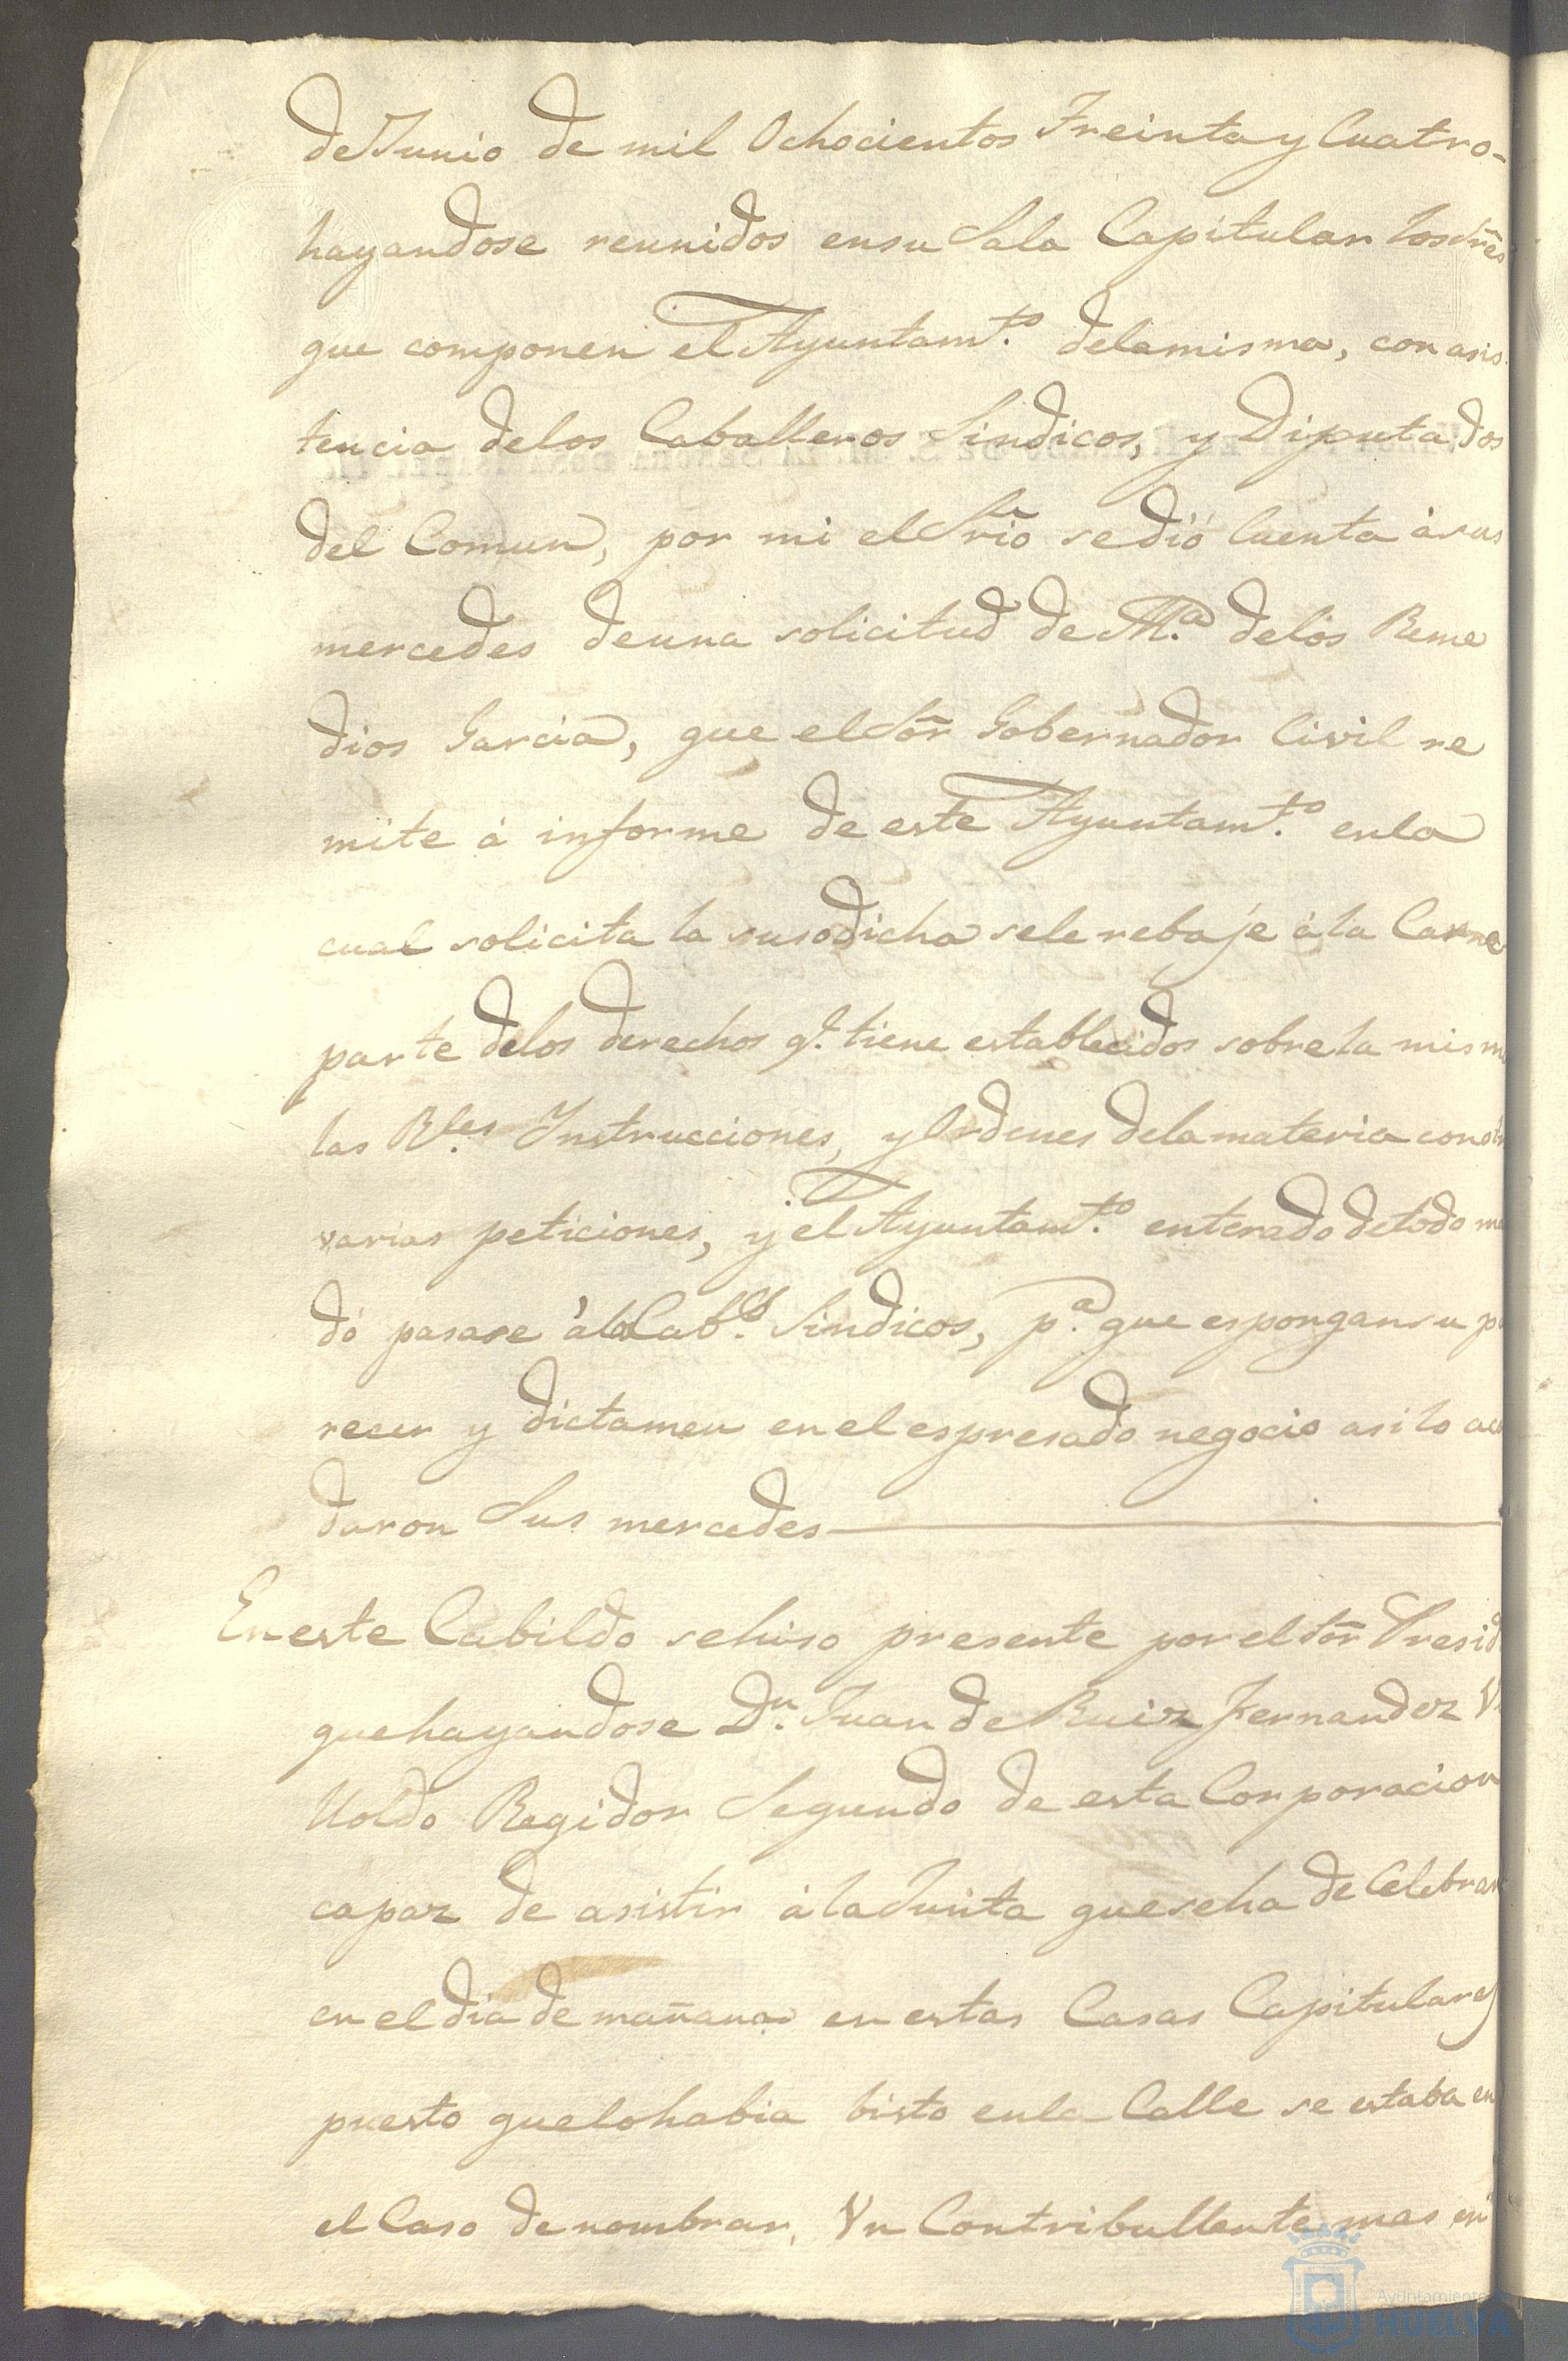 de Junio de mil Ochocientos Treinta y Cuatro-
hayandose reunidos ensu Sala Capitular los Sres
que componen el Ayuntamto. delamisma, con asis
tencia delos Caballeros Sindicos, y Diputados
del Comun, por mi el Srio sedió Cuenta á sus
mercedes deuna solicitud de Ma. delos Reme
dios Garcia, que el Sor Gobernador Civil re
mite á informe de este Ayuntamto. enla
cual solicita la susodicha sele rebaje á la Carne
parte delos derechos q.e tiene establecidos sobrela mism
las Rles. Instrucciones, y Ordenes dela materia con otr
varias peticiones, y el Ayuntamto. enterado detodo m
dó pasase á los Cabs. Sindicos, pa. que espongan su p
recer y dictamen en el espresado negocio asi lo aco
daron Sus mercedes
En este Cabildo se hiso presente por el Sor Presid
que hayandose Dn. Juan de Ruiz Fernandez
Regidor Segundo de esta Corporacion
capaz de asistir á la Junta que se ha de Celebrar
en el dia de mañana en estas Casas Capitulares
puesto que lo habia bisto enla Calle se estaba en
el Caso de nombrar, Vn Contribullente mas en
Ayuntamiento
HUELVA